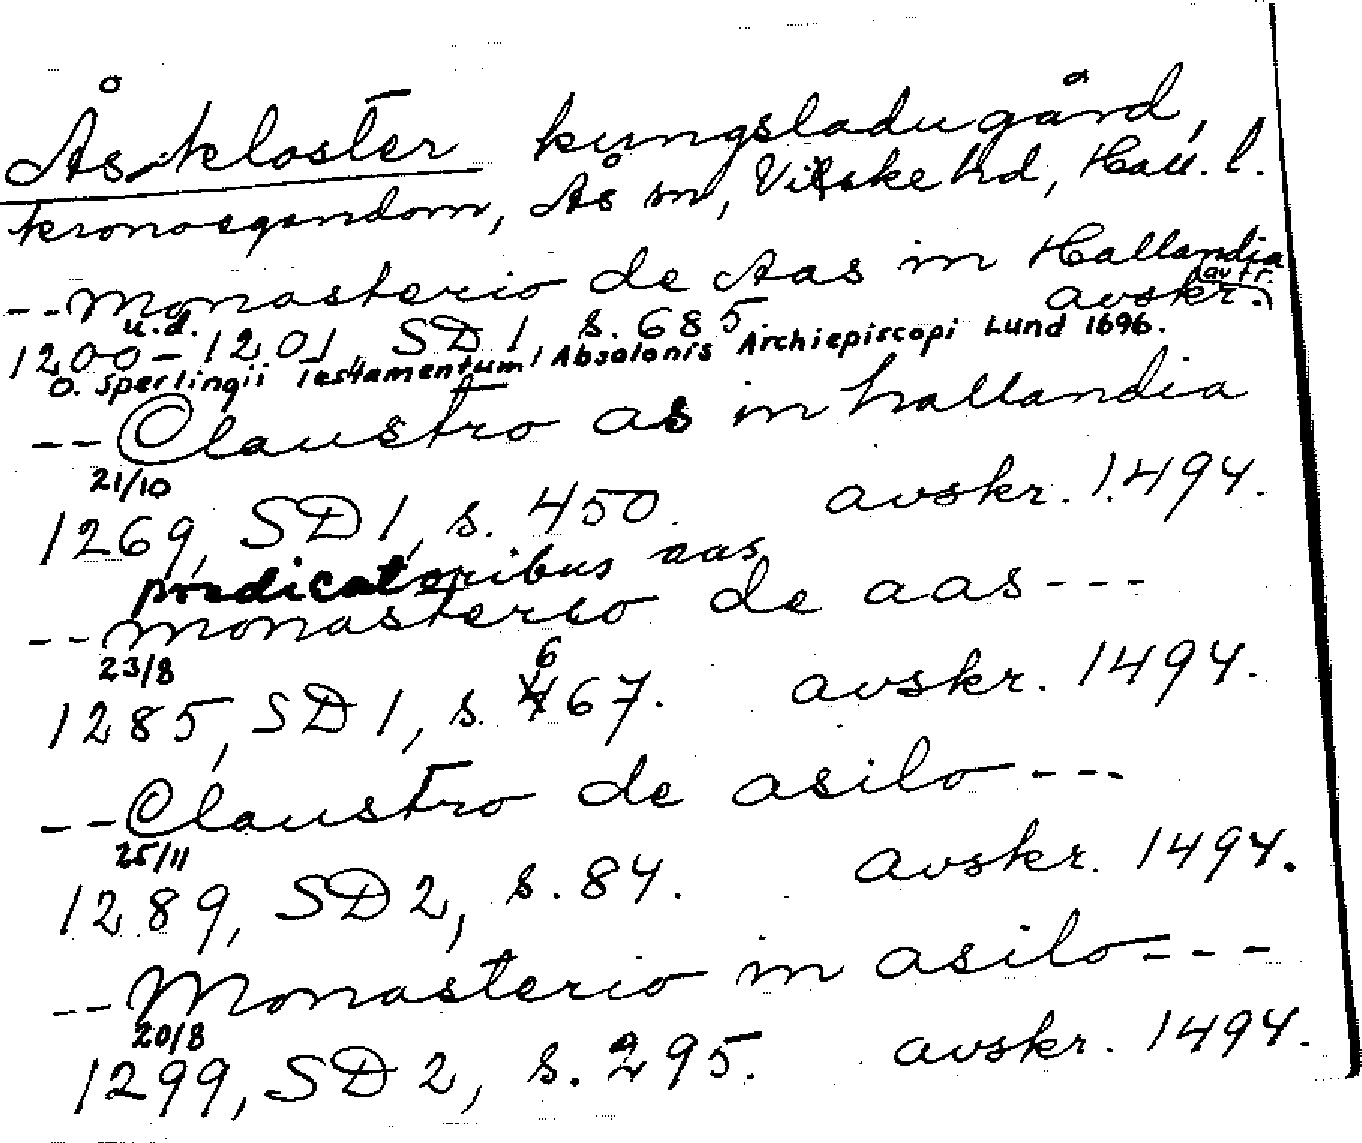 Ås kloster kungsladugård,
kronoegendom, Ås sn, Viske hd, Hall. l.
--Monasterio de Aas in Hallandia
u.d. avtr.
1200-1201, SD 1 s. 685 avskr.
O. Sperlingii Testamentum Absolonis Archiepiscopi Lund 1696.
--Claustro as in hallandia
21/10
1269, SD 1, s. 450. avskr. 1494.
predicatoribus aas
--monasterio de aas---
23/8 6
1285, SD 1, s. 467. avskr. 1494.
--Claustro de asilo---
25/11
1289, SD 2, s. 84. avskr. 1494.
--Monasterio in asilo---
20/8
1299, SD 2, s. 295. avskr. 1494.